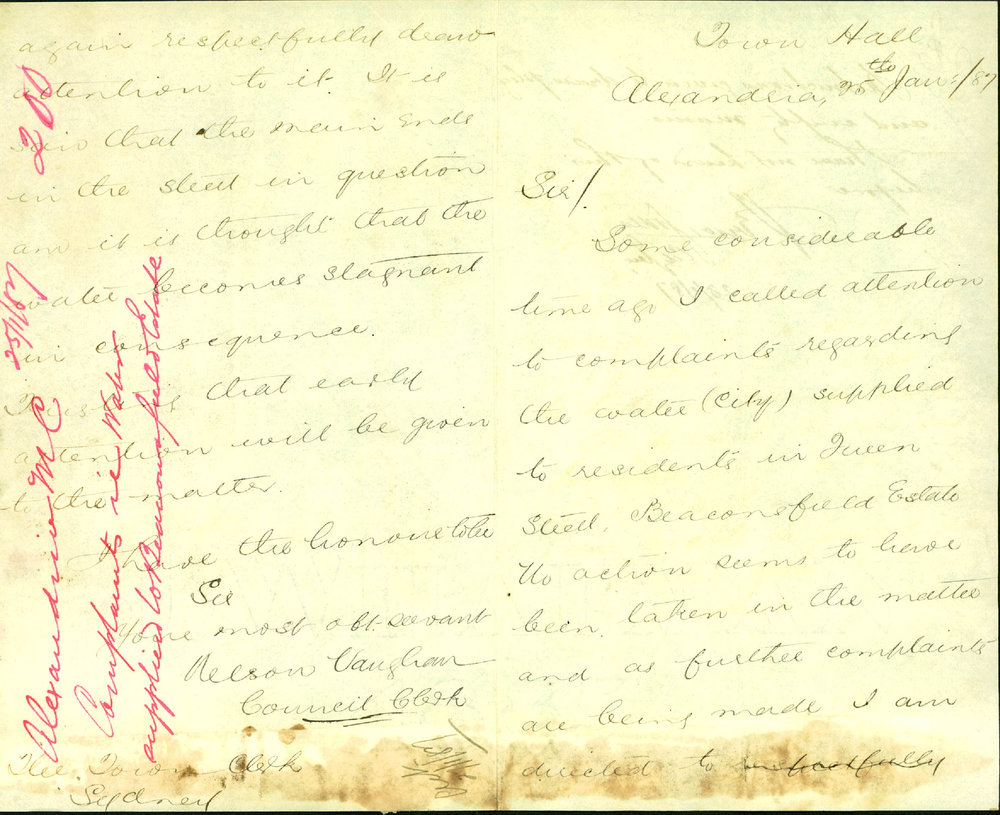 Town Hall
Alexandria, 25th Jany/87
Sir/.
Some considerable
time ago I called attention
to complaints regarding
the water (City) supplied
to residents in Queen
Street, Beaconsfield Estate
No action seems to have
been taken in the matter
and as further complaints
are being made I am
directed to respectfully
again respectfully draw
attention to it. It is
said that the main ends
in the street in question
and it is thought that the
water becomes stagnant
in consequence.
Trusting that early
attention will be given
to the matter.
I have the honour to be
Sir
Your most obt. servant
Nelson Vaughan
Council Clerk
The Town Clerk
Sydney
200
Alexandria M C 25/1/87
Complaints re Water
supplied to Beaconsfield Estate